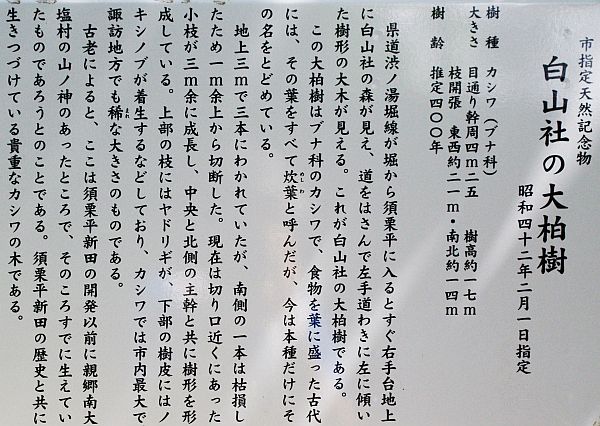 市指定天然記念物
白山社の大柏樹
昭和四十二年二月一日指定
樹種 カシワ（ブナ科）
大きさ 目通り幹周四m二五 樹高約一七m
枝開張 東西約二一m・南北約一四m
樹齢 推定四〇〇年
県道渋ノ湯堀線が堀から須栗平に入るとすぐ右手台地上
に白山社の森が見え、道をはさんで左手道わきに左に傾い
た樹形の大木が見える。これが白山社の大柏樹である。
この大柏樹はブナ科のカシワで、食物を葉に盛った古代
には、その葉をすべて炊葉と呼んだが、今は本種だけにそ
の名をとどめている。
地上三mで三本にわかれていたが、南側の一本は枯損し
たため一m余上から切断した。現在は切り口近くにあった
小枝が三m余に成長し、中央と北側の主幹と共に樹形を形
成している。上部の枝にはヤドリギが、下部の樹皮にはノ
キシノブが着生するなどしており、カシワでは市内最大で
諏訪地方でも稀な大きさのものである。
古老によると、ここは須栗平新田の開発以前に親郷南大
塩村の山ノ神のあったところで、そのころすでに生えてい
たものであろうとのことである。須栗平新田の歴史と共に
生きつづけている貴重なカシワの木である。